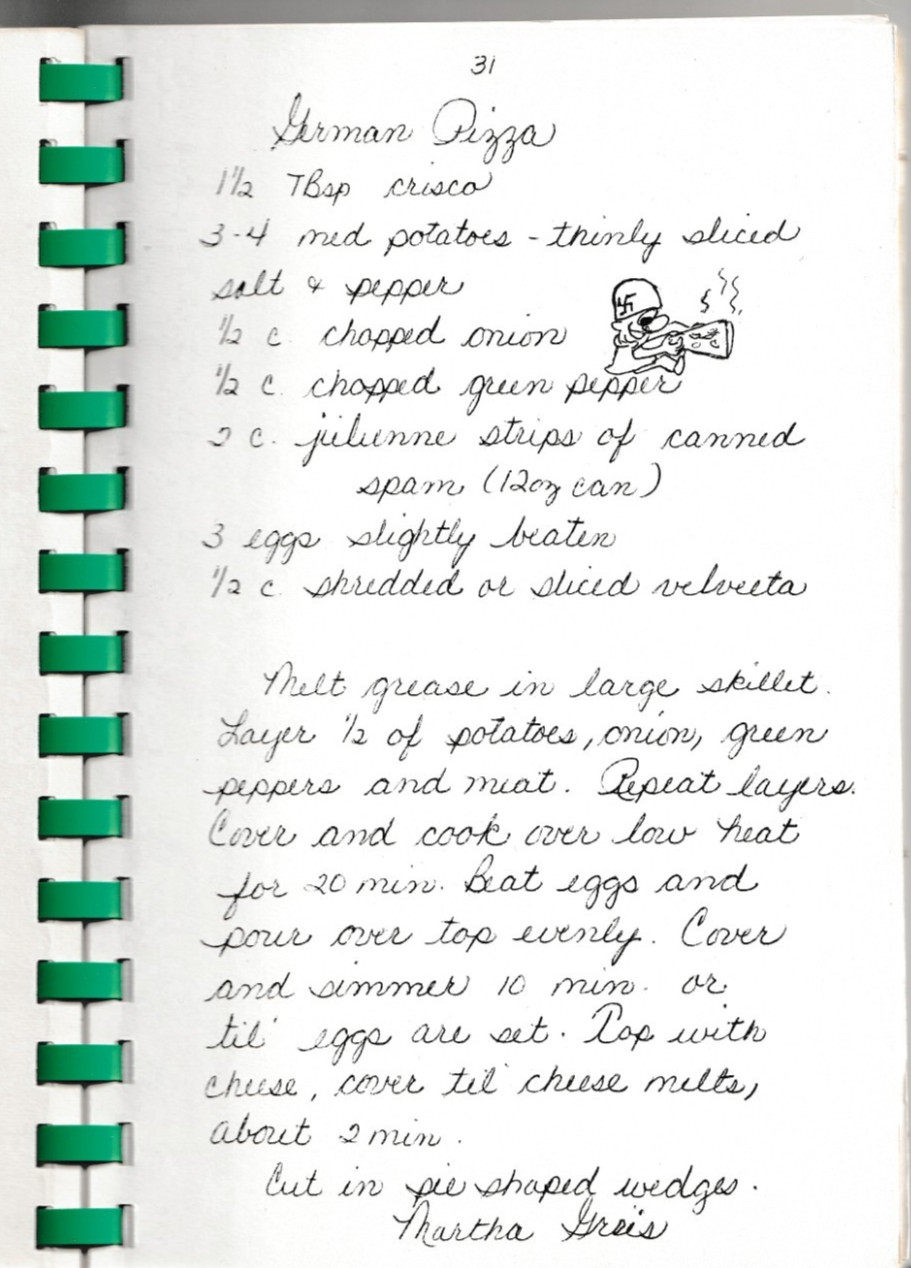 31
German Pizza
1 1/2 TBsp crisco
3-4 med potatoes - thinly sliced
salt & pepper
1/2 c. chopped onion
1/2 c. chopped green pepper
2 c. julienne strips of canned
spam (12oz can)
3 eggs slightly beaten
1/2 c. shredded or sliced velveeta
Melt grease in large skillet.
Layer 1/2 of potatoes, onion, green
peppers and meat. Repeat layers.
Cover and cook over low heat
for 20 min. Beat eggs and
pour over top evenly. Cover
and simmer 10 min. or
til' eggs are set. Top with
cheese, cover til' cheese melts,
about 2 min.
Cut in pie shaped wedges.
Martha Greis